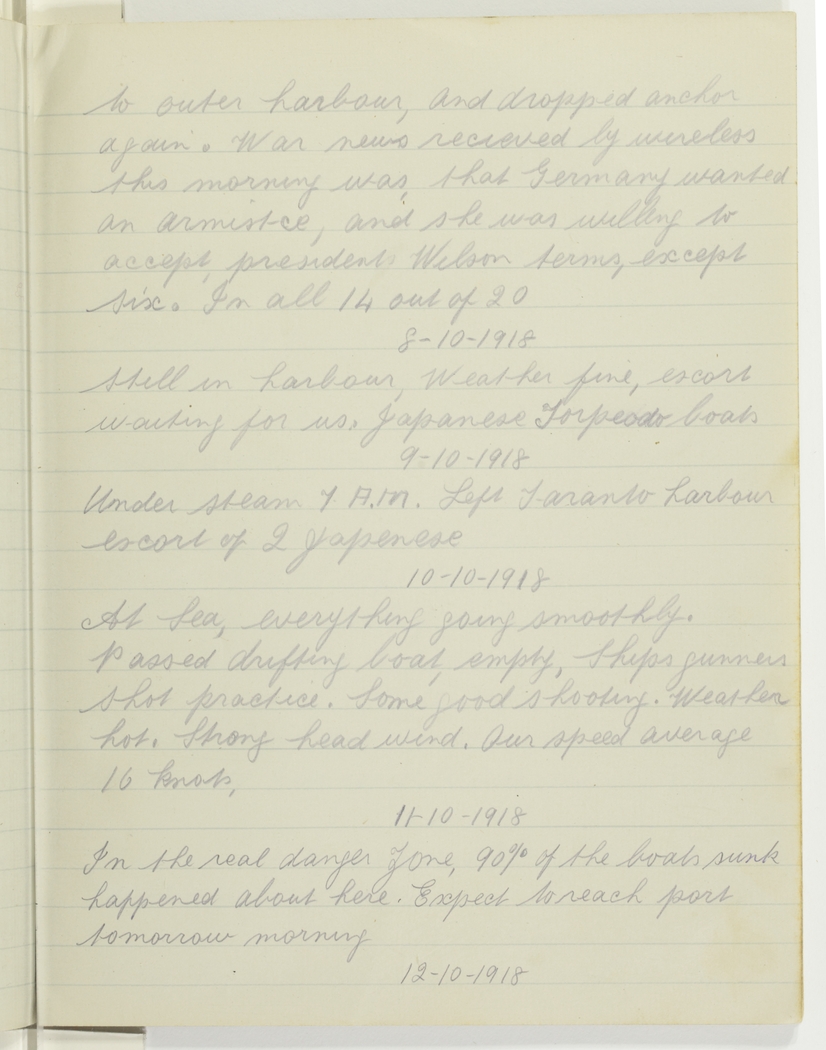 to outer harbour, and dropped anchor
again. War news recieved by wireless
this morning was, that Germany wanted
an armistce, and she was willing to
accept, presidents Wilson terms, except
six. In all 14 out of 20
8-10-1918
Still in harbour, Weather fine, escort
waiting for us. Japanese Torpeodo boats
9-10-1918
Under steam 7 A.M. Left Taranto harbour
escort of 2 Japenese
10-10-1918
At Sea, everything going smoothly.
Passed drifting boat, empty, Ships gunners
shot practice. Some good shooting. Weather
hot. Strong head wind. Our speed average
16 knots,
11-10-1918
In the real danger Zone, 90% of the boats sunk
happened about here. Expect to reach port
tomorrow morning
12-10-1918